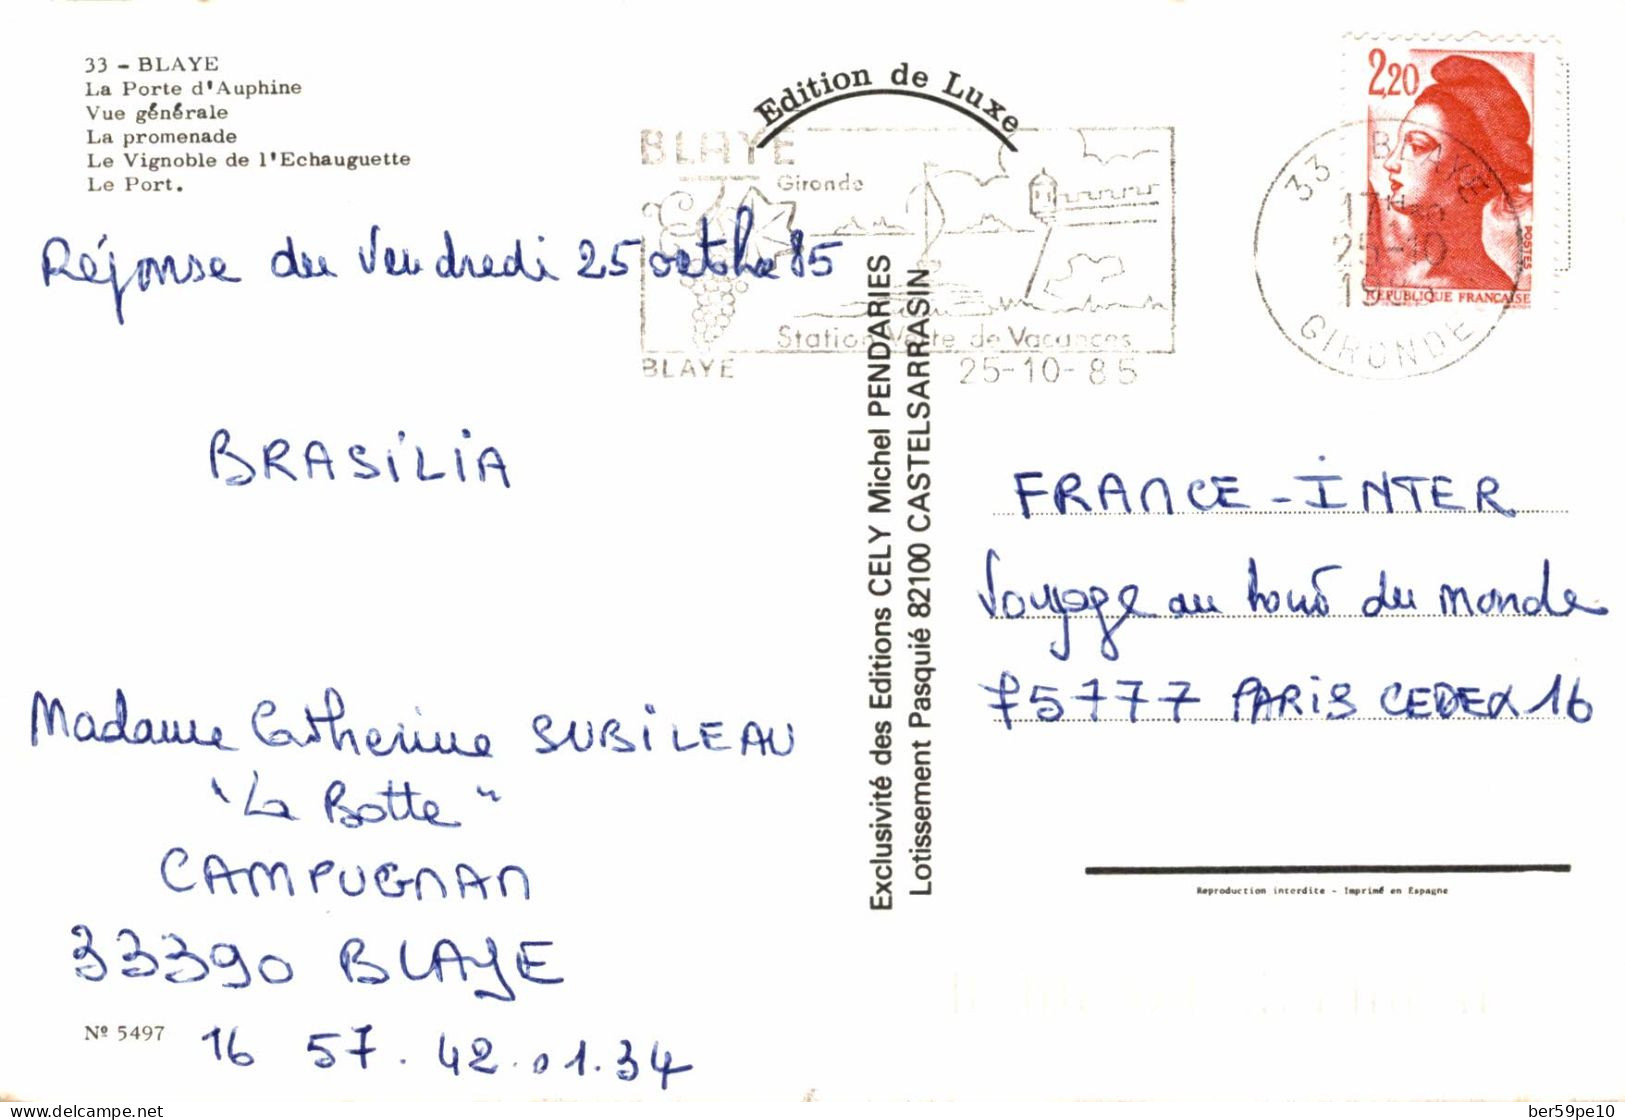 33 - BLAYE
La Porte d'Auphine
Vue générale
La promenade
Le Vignoble de l'Echauguette
Le Port.
Edition de Luxe
BLAYE
Gironde
Station Verte de Vacances
BLAYE 25-10-85
2,20
POSTES
REPUBLIQUE FRANÇAISE
33 BLAYE
17H
25-10
GIRONDE
Réponse du Vendredi 25 octobre 85
BRASILIA
Madame Catherine SUBILEAU
"La Botte"
CAMPUGNAN
33390 BLAYE
Nº 5497
16 57.42.01.34
Exclusivité des Editions CELY Michel PENDARIES
Lotissement Pasquié 82100 CASTELSARRASIN
FRANCE-INTER
Voyage au tour du monde
75777 PARIS CEDEX 16
Reproduction interdite - Imprimé en Espagne
www.delcampe.net
ber59pe10